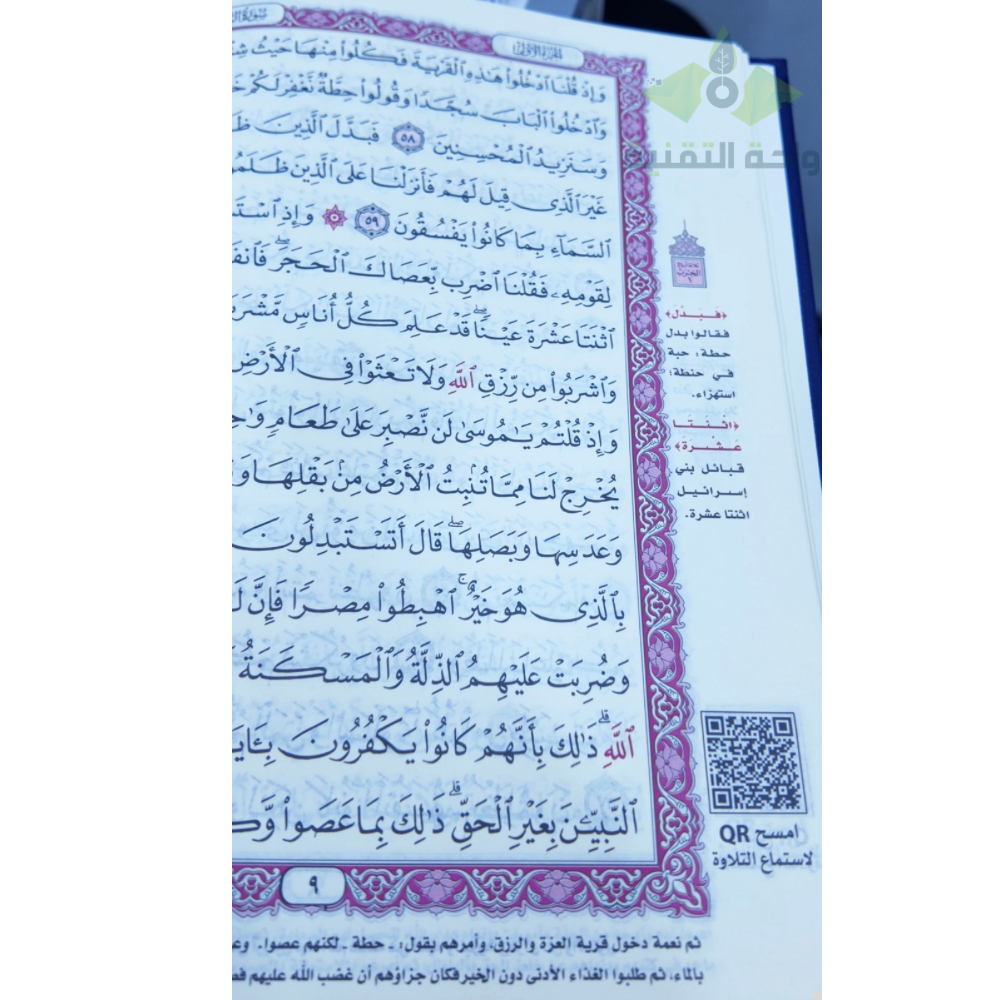 الجزء الأول
وَإِذْ قُلْنَا ادْخُلُوا هَذِهِ الْقَرْيَةَ فَكُلُوا مِنْهَا حَيْثُ
وَادْخُلُوا الْبَابَ سُجَّدًا وَقُولُوا حِطَّةٌ نَغْفِرْ لَكُمْ
وَسَنَزِيدُ الْمُحْسِنِينَ ٥٨ فَبَدَّلَ الَّذِينَ
غَيْرَ الَّذِي قِيلَ لَهُمْ فَأَنزَلْنَا عَلَى الَّذِينَ
السَّمَاءِ بِمَا كَانُوا يَفْسُقُونَ ٥٩ وَإِذِ
لِقَوْمِهِ فَقُلْنَا اضْرِب بِّعَصَاكَ الْحَجَرَ
اثْنَتَا عَشْرَةَ عَيْنًا قَدْ عَلِمَ كُلُّ أُنَاسٍ
وَاشْرَبُوا مِن رِّزْقِ اللَّهِ وَلَا تَعْثَوْا فِي الْأَرْضِ
وَإِذْ قُلْتُمْ يَامُوسَى لَن نَّصْبِرَ عَلَى طَعَامٍ
يُخْرِجْ لَنَا مِمَّا تُنبِتُ الْأَرْضُ مِن بَقْلِهَا
وَعَدَسِهَا وَبَصَلِهَا قَالَ أَتَسْتَبْدِلُونَ
بِالَّذِي هُوَ خَيْرٌ اهْبِطُوا مِصْرًا فَإِنَّ
وَضُرِبَتْ عَلَيْهِمُ الذِّلَّةُ وَالْمَسْكَنَةُ
اللَّهِ ذَٰلِكَ بِأَنَّهُمْ كَانُوا يَكْفُرُونَ
النَّبِيِّنَ بِغَيْرِ الْحَقِّ ذَٰلِكَ بِمَا عَصَوا
٩
واحة التقنية
﴿فبدل﴾
فقالوا بدل
حطة، حبة
في حنطة؛
استهزاء.
﴿اثنتا
عشرة﴾
قبائل بني
إسرائيل
اثنتا عشرة.
امسح QR
لاستماع التلاوة
ثم نعمة دخول قرية العزة والرزق، وأمرهم بقول: - حطة - لكنهم عصوا.
بالماء، ثم طلبوا الغذاء الأدنى دون الخير فكان جزاؤهم أن غضب الله عليهم